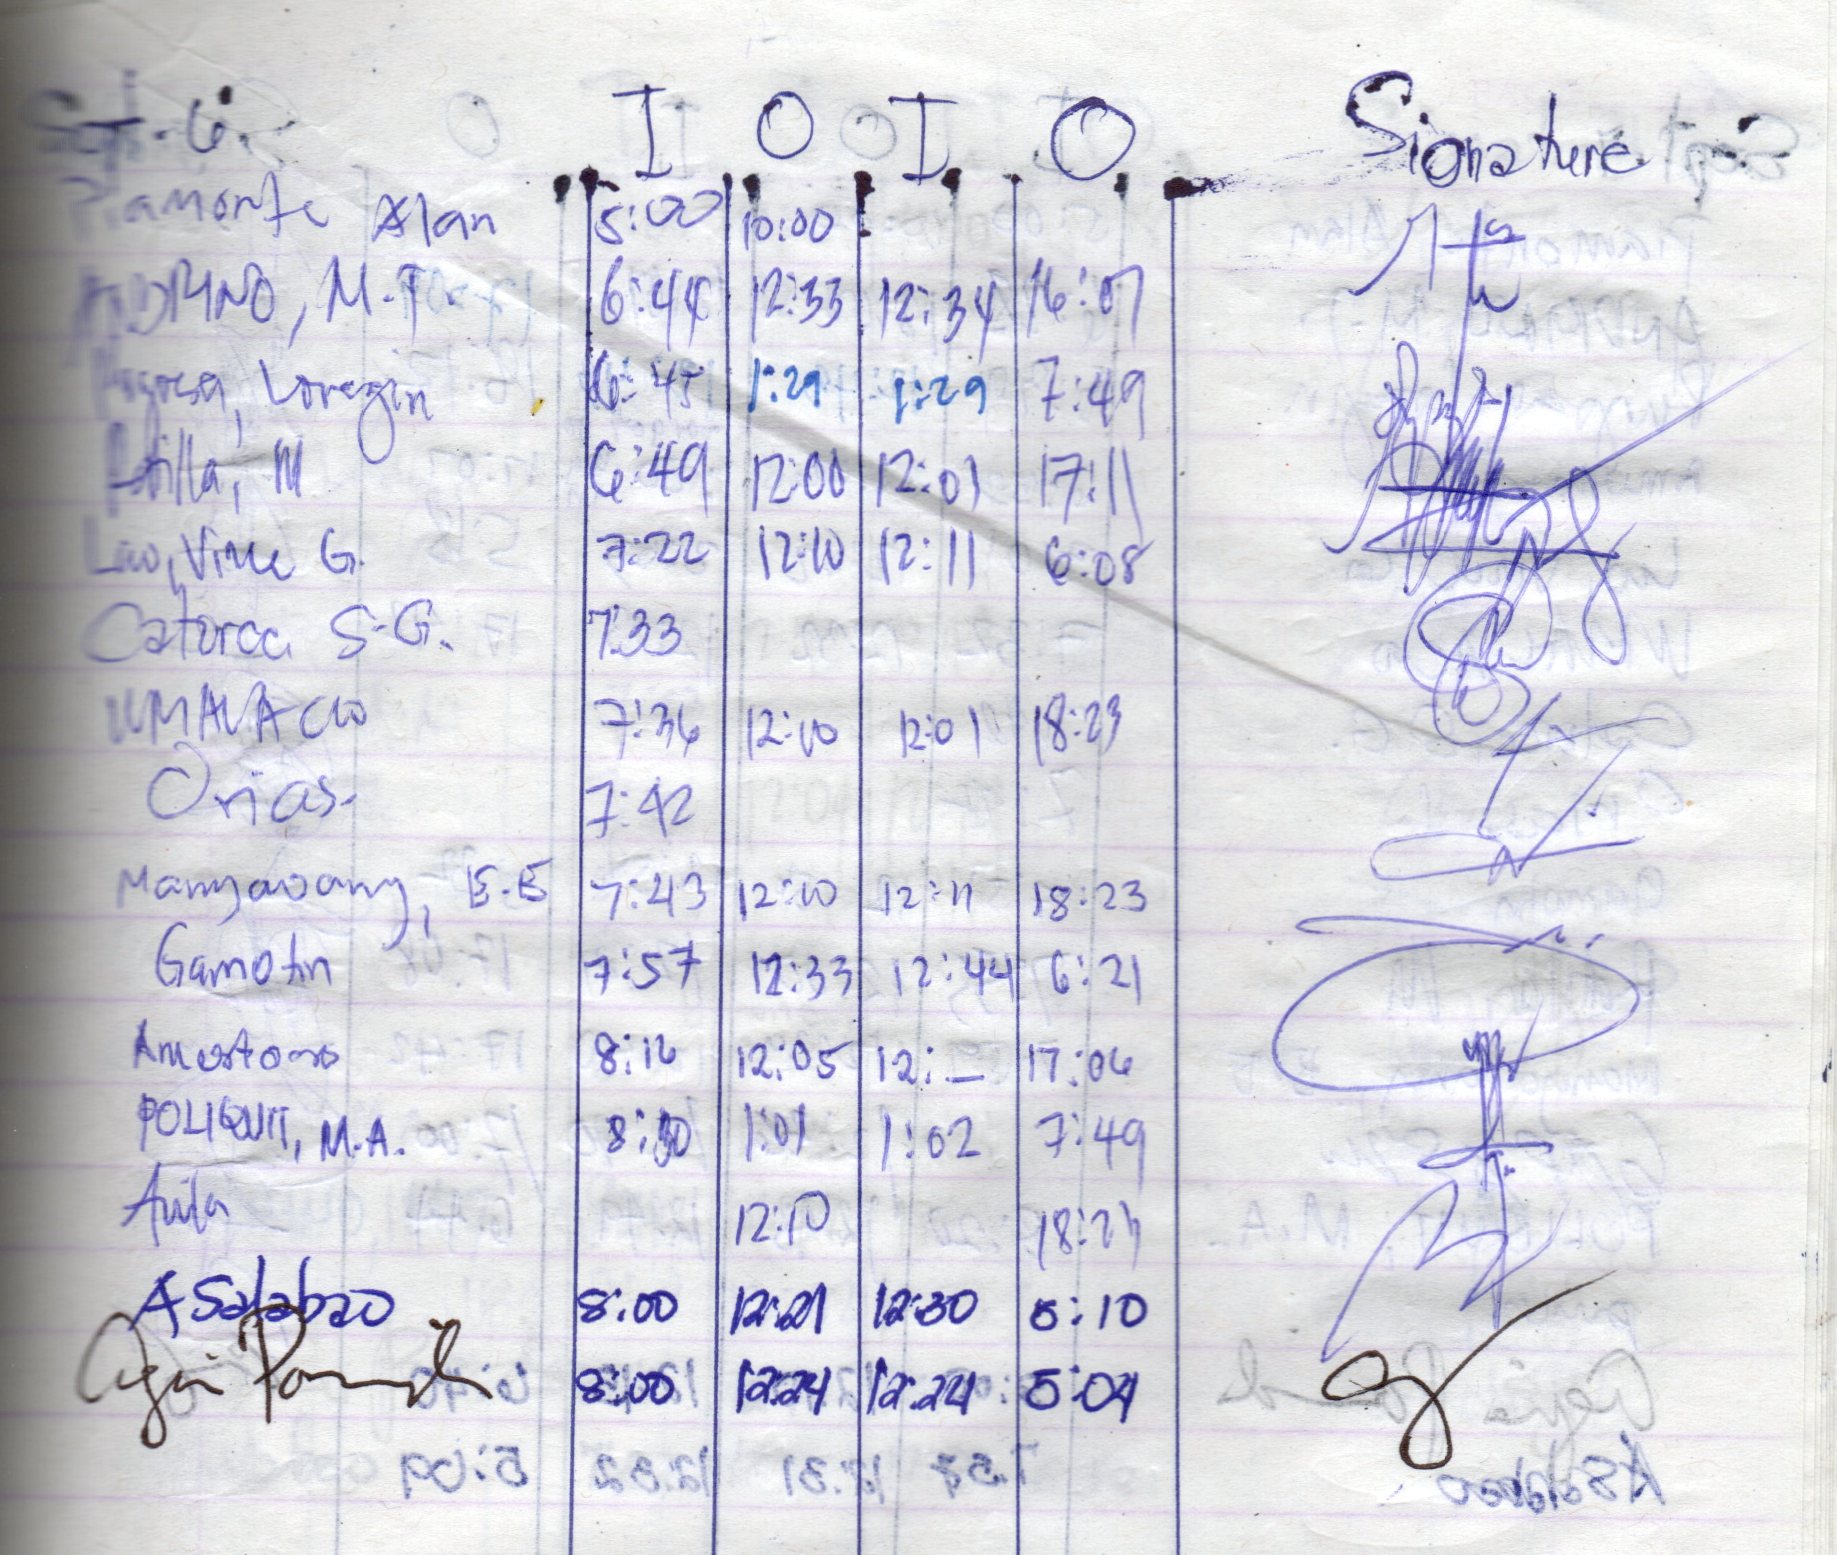 Sept. 6. I O I O Signature
Piamonte Alan 5:00 10:00
M.T. 6:44 12:33 12:34 16:07
Loregin 6:45 1:29 1:29 7:49
M 6:49 12:00 12:01 17:11
Lao, Vince G. 7:22 12:10 12:11 6:08
Catorce S.G. 7:33
7:36 12:00 12:01 18:23
Orias. 7:42
Mangaoang, E.E 7:43 12:10 12:11 18:23
Gamotin 7:57 12:33 12:44 6:21
Amestoso 8:16 12:05 12:_ 17:06
POLIQUIT, M.A. 8:30 1:01 1:02 7:49
Avila 12:10 18:23
A Salabao 8:00 12:21 12:30 5:10
8:00 12:24 12:24 5:04